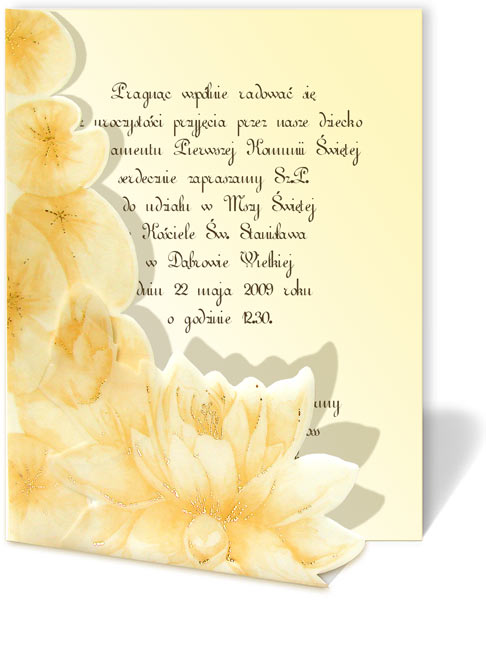 Pragnąc wspólnie radować się
z uroczystości przyjęcia przez nasze dziecko
amentu Pierwszej Komunii Świętej
serdecznie zapraszamy Sz.P.
do udziału w Mszy Świętej
Kościele Św. Stanisława
w Dąbrowie Wielkiej
dniu 22 maja 2009 roku
o godzinie 12.30.
amy